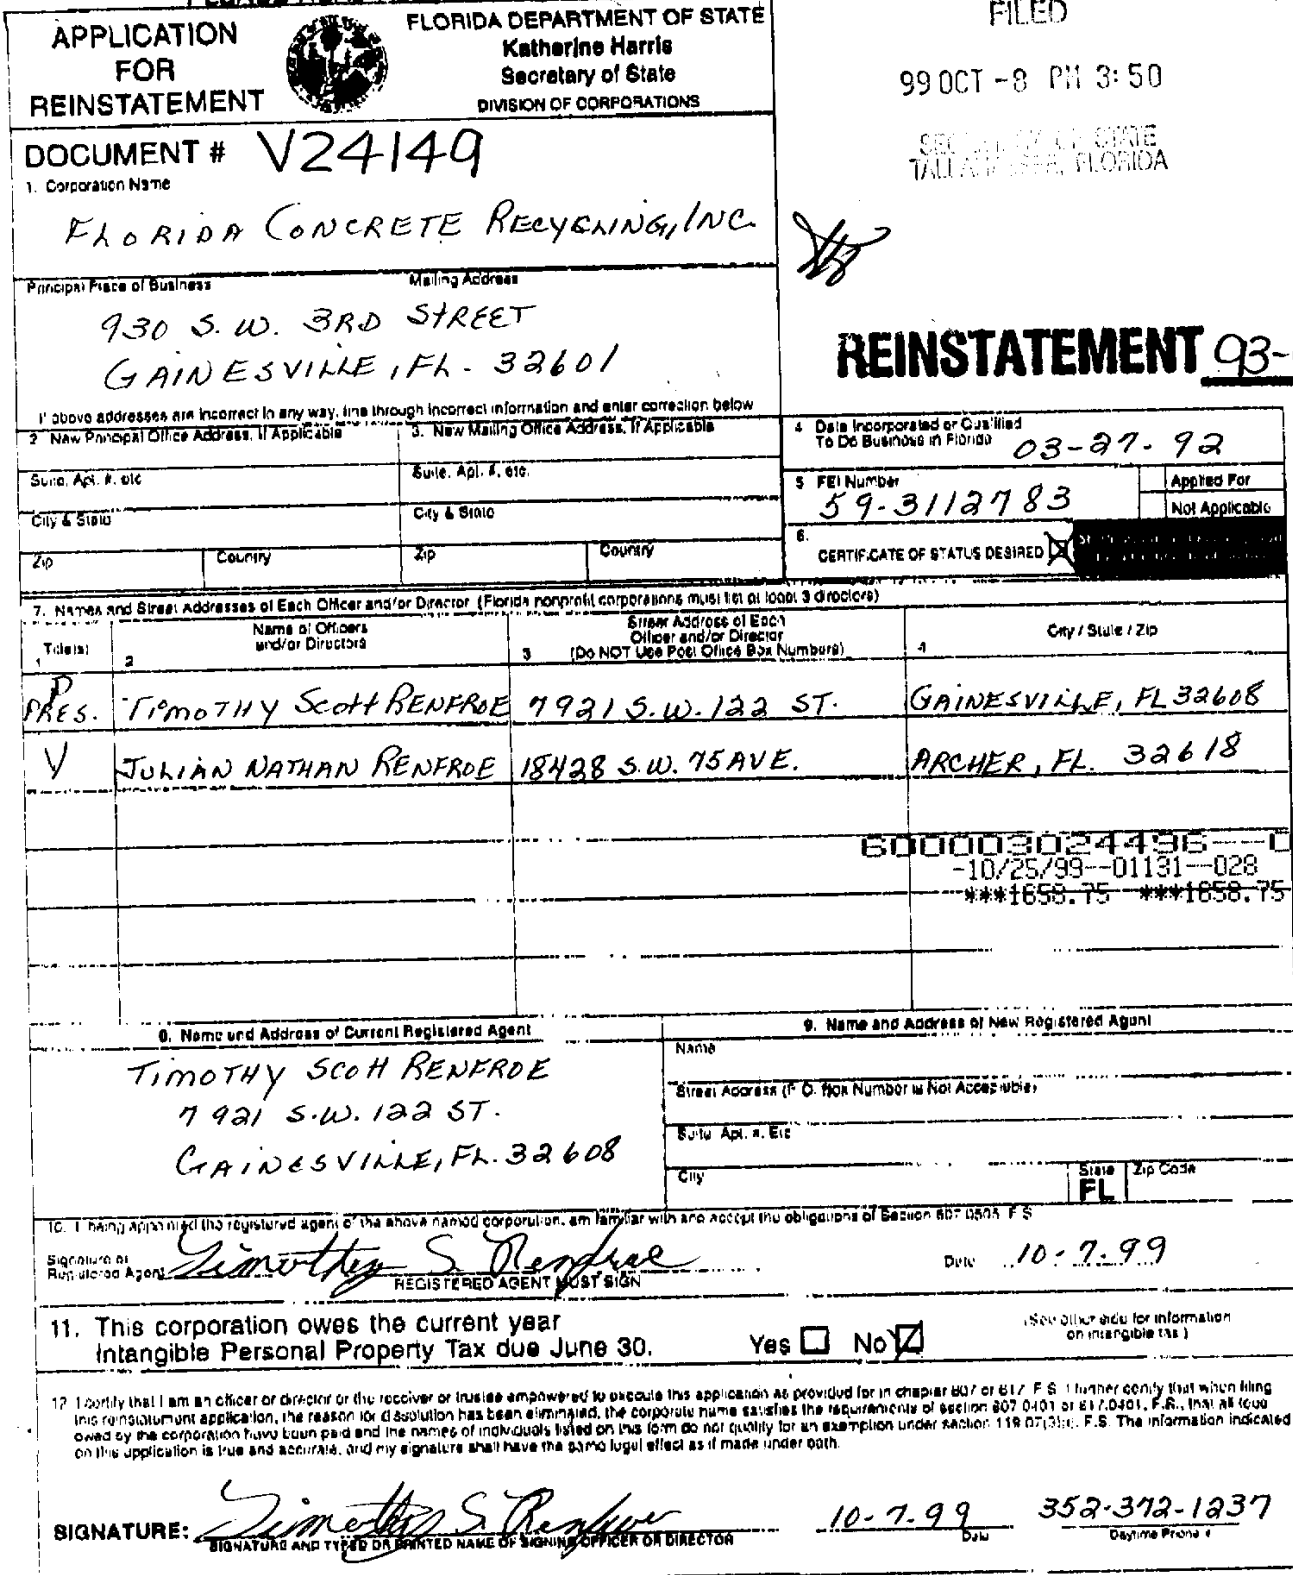 APPLICATION
FOR
REINSTATEMENT
FLORIDA DEPARTMENT OF STATE
Katherine Harris
Secretary of State
DIVISION OF CORPORATIONS
FILED
99 OCT -8 PM 3:50
STATE
TALLAHASSEE, FLORIDA
DOCUMENT # V24149
1. Corporation Name
FLORIDA CONCRETE RECYCLING, INC.
Principal Place of Business Mailing Address
930 S.W. 3RD STREET
GAINESVILLE, FL. 32601
REINSTATEMENT 93-
If above addresses are incorrect in any way, line through incorrect information and enter correction below
2 New Principal Office Address, If Applicable
3. New Mailing Office Address, If Applicable
4 Date Incorporated or Qualified
To Do Business in Florida 03-27-92
Suite, Apt. #, etc
Suite, Apt. #, etc.
5 FEI Number
59-3112783
Applied For
Not Applicable
City & State
City & State
6.
CERTIFICATE OF STATUS DESIRED
Zip Country Zip Country
7. Names and Street Addresses of Each Officer and/or Director (Florida nonprofit corporations must list at least 3 directors)
Title(s)
1
Name of Officers
and/or Directors
2
Street Address of Each
Officer and/or Director
3 (Do NOT Use Post Office Box Numbers)
City / State / Zip
4
P
PRES. TIMOTHY SCOTT RENFROE 7921 S.W. 122 ST. GAINESVILLE, FL 32608
V JULIAN NATHAN RENFROE 18428 S.W. 75 AVE. ARCHER, FL. 32618
600003024496--
-10/25/99--01131--028
***1658.75 ***1658.75
8. Name and Address of Current Registered Agent
TIMOTHY SCOTT RENFROE
7921 S.W. 122 ST.
GAINESVILLE, FL. 32608
9. Name and Address of New Registered Agent
Name
Street Address (P.O. Box Number is Not Acceptable)
Suite Apt. #, Etc
City State FL Zip Code
10. I being appointed the registered agent of the above named corporation, am familiar with and accept the obligations of Section 607.0505, F.S
Signature of
Registered Agent Timothy S. Renfroe Date 10-7-99
REGISTERED AGENT MUST SIGN
11. This corporation owes the current year
Intangible Personal Property Tax due June 30. Yes No
(See other side for information
on intangible tax)
12 I certify that I am an officer or director or the receiver or trustee empowered to execute this application as provided for in chapter 607 or 617 F.S I further certify that when filing
this reinstatement application, the reason for dissolution has been eliminated, the corporate name satisfies the requirements of section 607 0401 or 617.0401, F.S., that all fees
owed by the corporation have been paid and the names of individuals listed on this form do not qualify for an exemption under section 119.07(3)(i), F.S. The information indicated
on this application is true and accurate, and my signature shall have the same legal effect as if made under oath.
SIGNATURE: Timothy S. Renfroe 10-7-99 352-372-1237
SIGNATURE AND TYPED OR PRINTED NAME OF SIGNING OFFICER OR DIRECTOR Date Daytime Phone #